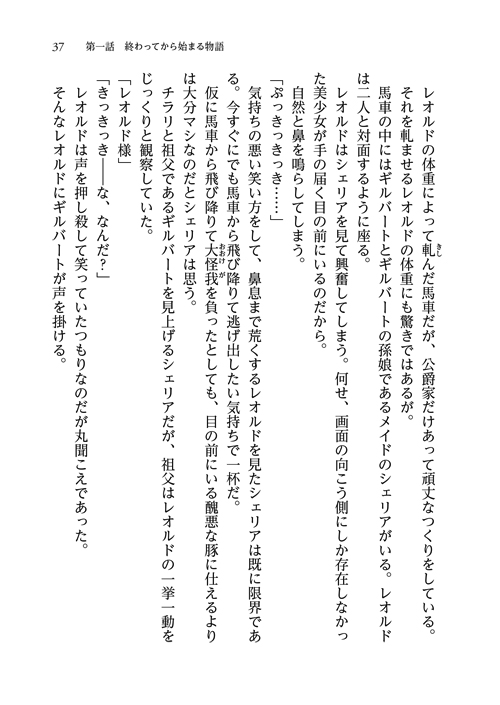 37　第一話　終わってから始まる物語
　レオルドの体重によって軋んだ馬車だが、公爵家だけあって頑丈なつくりをしている。
　それを軋ませるレオルドの体重にも驚きではあるが。
　馬車の中にはギルバートとギルバートの孫娘であるメイドのシェリアがいる。レオルド
は二人と対面するように座る。
　レオルドはシェリアを見て興奮してしまう。何せ、画面の向こう側にしか存在しなかっ
た美少女が手の届く目の前にいるのだから。
　自然と鼻を鳴らしてしまう。
「ぷっきっきっき……」
　気持ちの悪い笑い方をして、鼻息まで荒くするレオルドを見たシェリアは既に限界であ
る。今すぐにでも馬車から飛び降りて逃げ出したい気持ちで一杯だ。
　仮に馬車から飛び降りて大怪我を負ったとしても、目の前にいる醜悪な豚に仕えるより
は大分マシなのだとシェリアは思う。
　チラリと祖父であるギルバートを見上げるシェリアだが、祖父はレオルドの一挙一動を
じっくりと観察していた。
「レオルド様」
「きっきっき――な、なんだ？」
　レオルドは声を押し殺して笑っていたつもりなのだが丸聞こえであった。
　そんなレオルドにギルバートが声を掛ける。